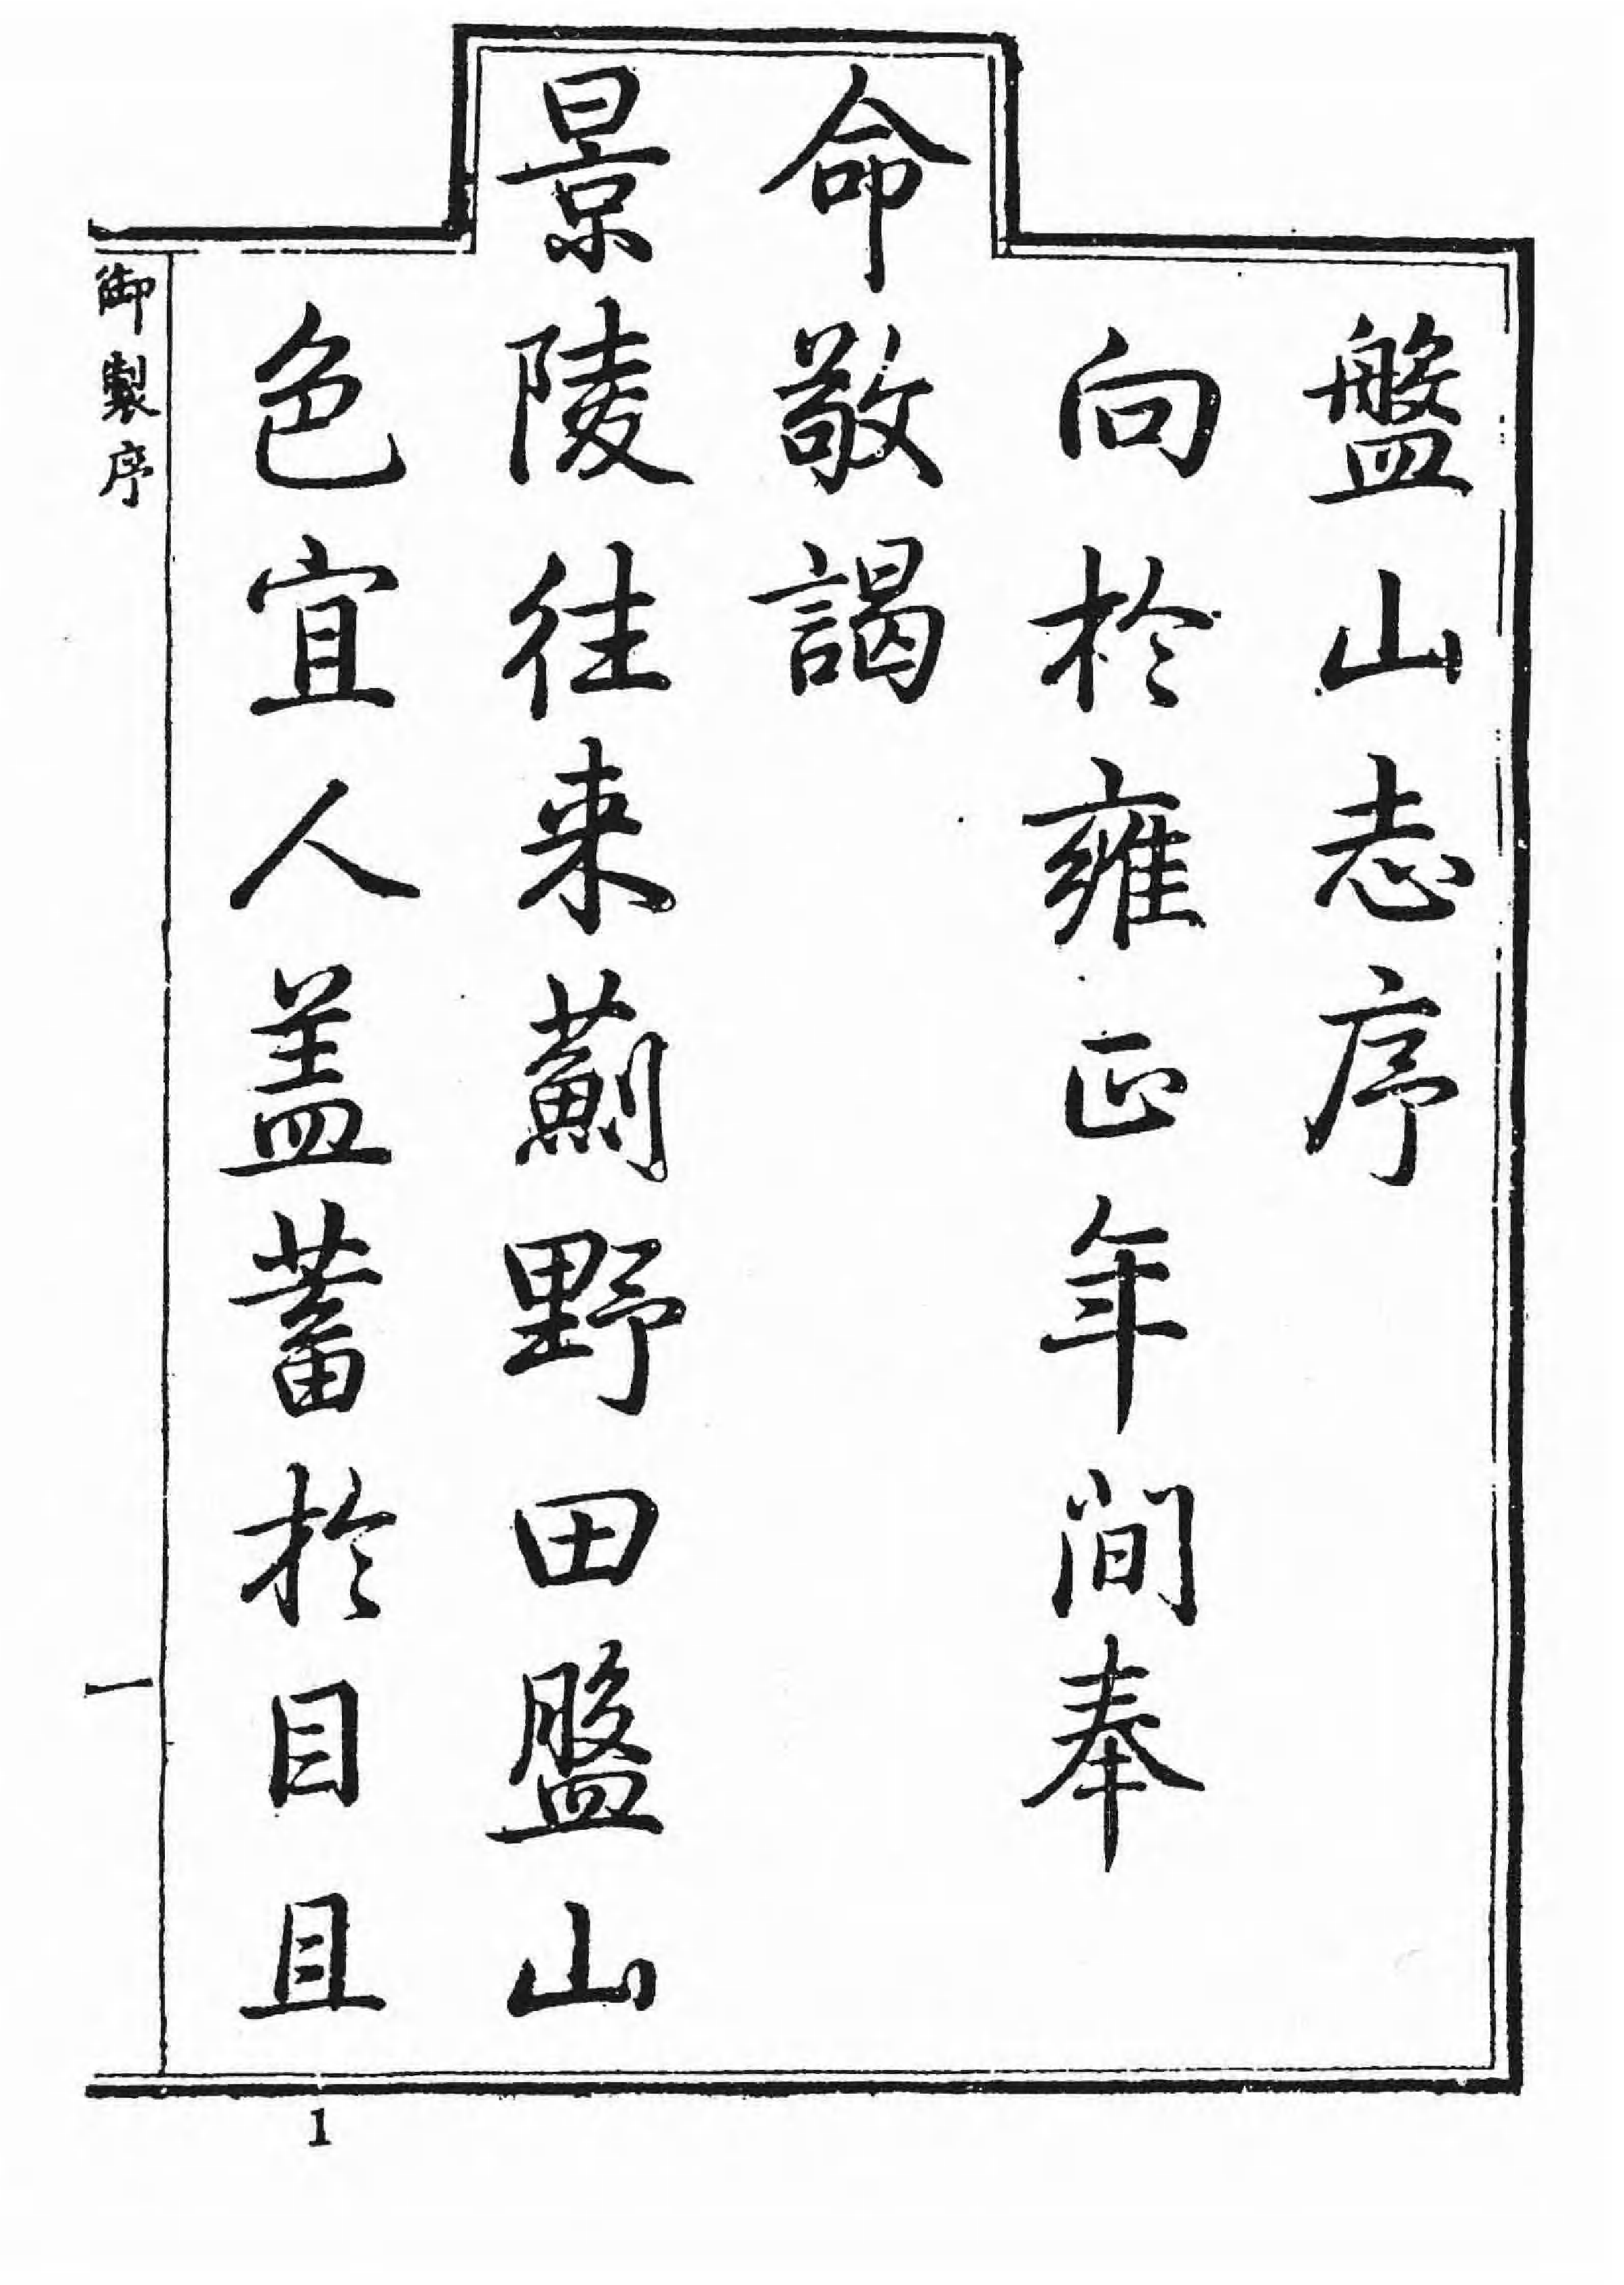 盤山志序
向於雍正年間奉
命敬謁
景陵往来薊野田盤山
色宜人盖蓄於目且
御製序
一
1